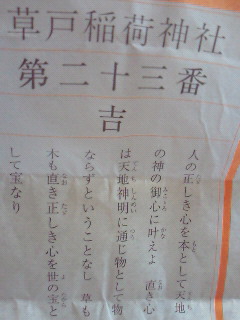 草戸稲荷神社
第二十三番
吉
人の正しき心を本として天地
の神の御心に叶えよ　直き心
は天地神明に通じ物として物
ならずということなし　草も
木も直き正しき心を世の宝と
して宝なり